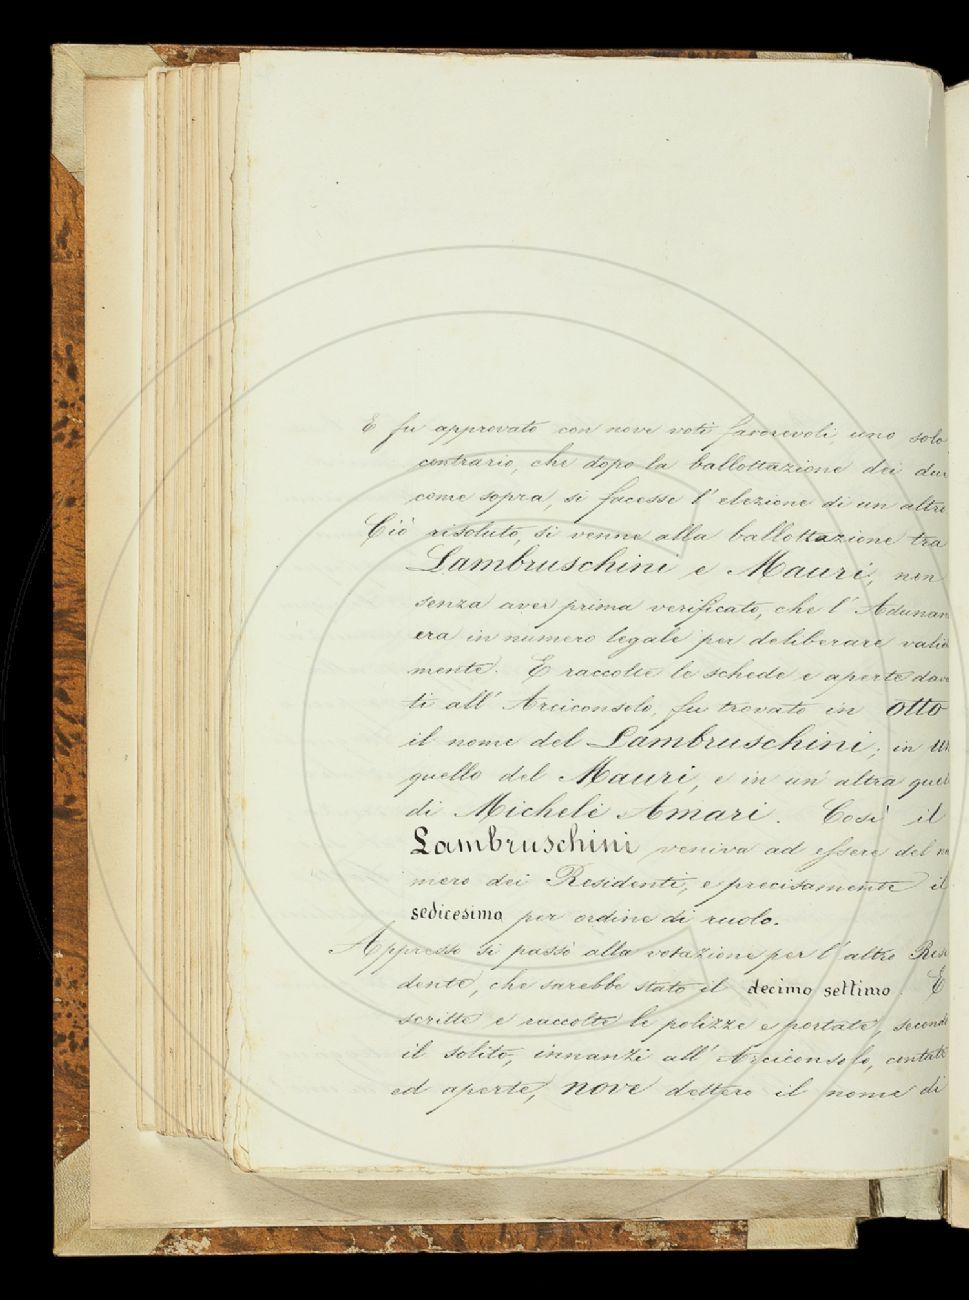 E fu approvato con nove voti favorevoli, uno solo
contrario, che dopo la ballottazione dei due
come sopra, si facesse l'elezione di un altro
Ciò risoluto, si venne alla ballottazione tra
Lambruschini e Mauri, non
senza aver prima verificato, che l'Adunan
era in numero legale per deliberare valid
mente. E raccolte le schede e aperte davan
ti all'Arciconsolo, fu trovato in otto
il nome del Lambruschini; in un
quello del Mauri, e in un'altra quel
di Michele Amari. Così il
Lambruschini veniva ad essere del nu
mero dei Residenti, e precisamente il
sedicesimo per ordine di ruolo.
Appresso si passò alla votazione per l'altro Resi
dente, che sarebbe stato il decimo settimo. E
scritte e raccolte le polizze e portate, secondo
il solito, innanzi all'Arciconsolo, contate
ed aperte, nove dettero il nome di